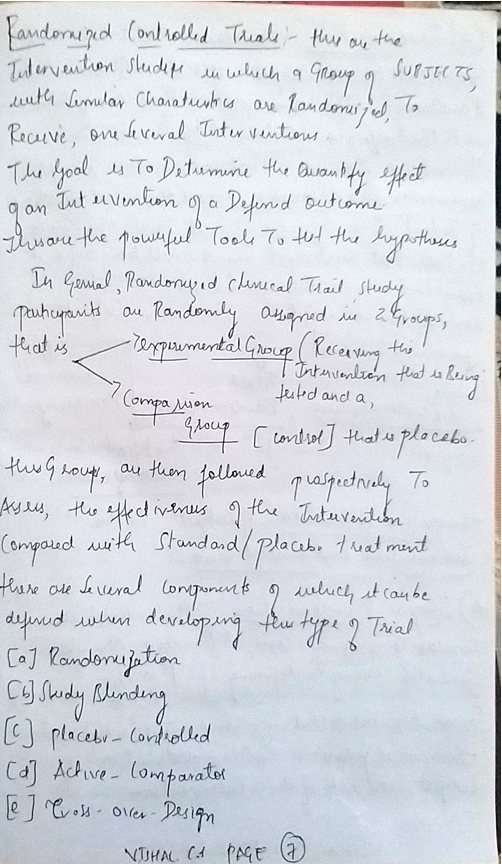 Randomized Controlled Trials:- this are the
Intervention Studies in which a Group of SUBJECTS,
with Similar Charateristics are Randomized, To
Receive, one Several Interventions.
The Goal is To Determine the Quantify effect
of an Intervention of a Defined outcome
This are the powerful Tools To test the hypothesis
In General, Randomized clinical Trail, study
participants are Randomly assigned in 2 Groups,
that is
experimental Group (Receiving the
Intervention that is Being
tested and a,
Comparision
Group [control] that is placebo.
this Groups, are then followed prospectively To
Assess, the effectiveness of the Intervention
Compared with Standard/placebo treatment
there are Several components of which it can be
defined when developing this type of Trial
[a] Randomization
[b] Study Blinding
[c] placebo-Controlled
[d] Active-Comparator
[e] Cross-over-Design
VISHAL C.S PAGE 7